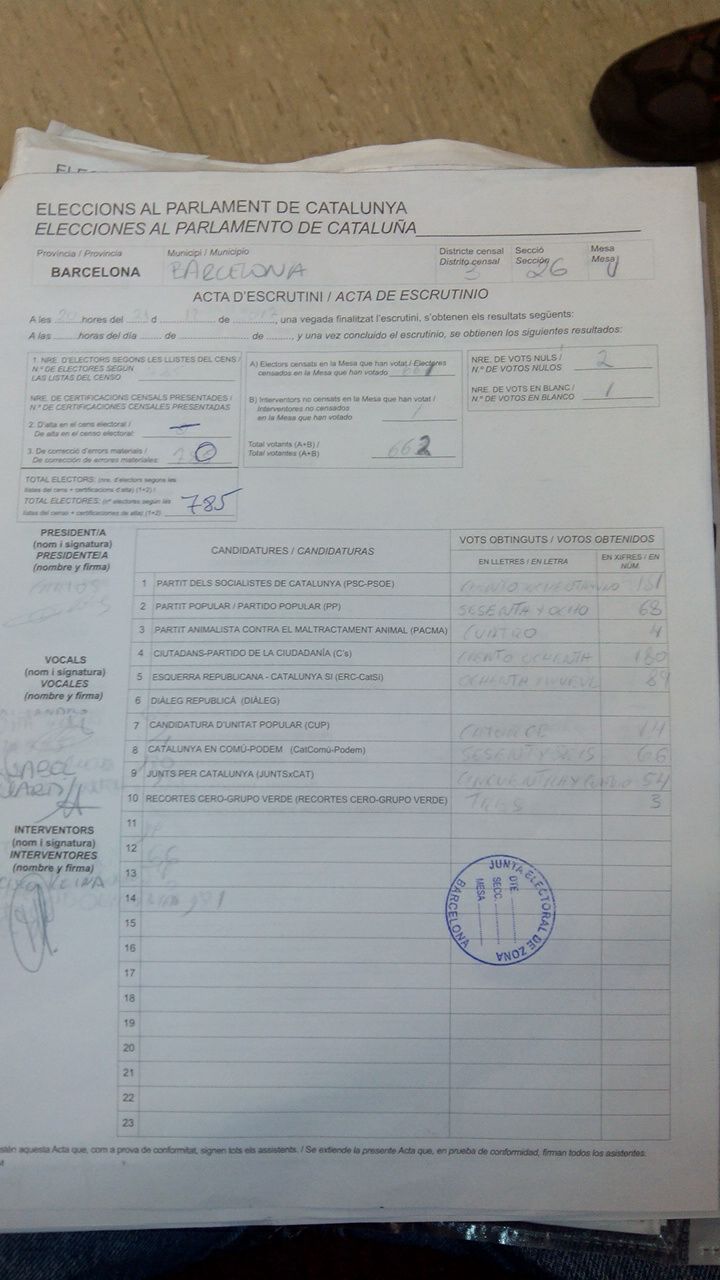 ELECCIONS AL PARLAMENT DE CATALUNYA
ELECCIONES AL PARLAMENTO DE CATALUÑA
Província / Provincia
BARCELONA
Municipi / Municipio
BARCELONA
Districte censal
Distrito censal
3
Secció
Sección
26
Mesa
Mesa
U
ACTA D'ESCRUTINI / ACTA DE ESCRUTINIO
A les 20 hores del 21 d 12 de 2017, una vegada finalitzat l'escrutini, s'obtenen els resultats següents:
A las horas del día de de , y una vez concluido el escrutinio, se obtienen los siguientes resultados:
1. NRE. D'ELECTORS SEGONS LES LLISTES DEL CENS /
N.º DE ELECTORES SEGÚN
LAS LISTAS DEL CENSO
NRE. DE CERTIFICACIONS CENSALS PRESENTADES /
N.º DE CERTIFICACIONES CENSALES PRESENTADAS
2. D'alta en el cens electoral /
De alta en el censo electoral:
3. De correcció d'errors materials /
De corrección de errores materiales: 0
TOTAL ELECTORS: (nre. d'electors segons les
llistes del cens + certificacions d'alta) (1+2) /
TOTAL ELECTORES: (nº electores según las
listas del censo + certificaciones de alta) (1+2) 785
A) Electors censats en la Mesa que han votat / Electores
censados en la Mesa que han votado 661
B) Interventors no censats en la Mesa que han votat /
Interventores no censados
en la Mesa que han votado 1
Total votants (A+B) /
Total votantes (A+B) 662
NRE. DE VOTS NULS /
N.º DE VOTOS NULOS 2
NRE. DE VOTS EN BLANC /
N.º DE VOTOS EN BLANCO 1
PRESIDENT/A
(nom i signatura)
PRESIDENTE/A
(nombre y firma)
VOCALS
(nom i signatura)
VOCALES
(nombre y firma)
INTERVENTORS
(nom i signatura)
INTERVENTORES
(nombre y firma)
CANDIDATURES / CANDIDATURAS
VOTS OBTINGUTS / VOTOS OBTENIDOS
EN LLETRES / EN LETRA
EN XIFRES / EN NÚM.
1 PARTIT DELS SOCIALISTES DE CATALUNYA (PSC-PSOE) CIENTO OCHENTA Y UNO 181
2 PARTIT POPULAR / PARTIDO POPULAR (PP) SESENTA Y OCHO 68
3 PARTIT ANIMALISTA CONTRA EL MALTRACTAMENT ANIMAL (PACMA) CUATRO 4
4 CIUTADANS-PARTIDO DE LA CIUDADANÍA (C's) CIENTO OCHENTA 180
5 ESQUERRA REPUBLICANA - CATALUNYA SÍ (ERC-CatSí) OCHENTA Y NUEVE 89
6 DIÀLEG REPUBLICÀ (DIÀLEG)
7 CANDIDATURA D'UNITAT POPULAR (CUP) CATORCE 14
8 CATALUNYA EN COMÚ-PODEM (CatComú-Podem) SESENTA Y SEIS 66
9 JUNTS PER CATALUNYA (JUNTSxCAT) CINCUENTA Y CUATRO 54
10 RECORTES CERO-GRUPO VERDE (RECORTES CERO-GRUPO VERDE) TRES 3
11
12
13
14
15
16
17
18
19
20
21
22
23
JUNTA ELECTORAL DE ZONA
BARCELONA
DTE.
SECC.
MESA
aquesta Acta que, com a prova de conformitat, signen tots els assistents. / Se extiende la presente Acta que, en prueba de conformidad, firman todos los asistentes.